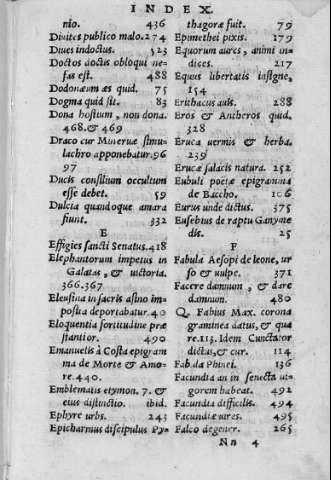 INDEX.
nio. 436
Divites publico malo. 274
Diues indoctus. 523
Doctos doctis obloqui ne
fas est. 488
Dodonæum æs quid. 75
Dogma quid sit. 83
Dona hostium, non dona.
468. & 469
Draco cur Mineruæ simu
lachro apponebatur. 96
97
Ducis consilium occultum
esse debet. 59
Dulcia quandoque amara
fiunt. 332
E
Effigies sancti Senatus. 418
Elephantorum impetus in
Galatas, & victoria.
366.367
Eleusina in sacris asino im-
posita deportabatur. 40
Eloquentia fortitudine præ
stantior. 490
Emanuelis à Costa epigram
ma de Morte & Amo-
re. 440.
Emblematis etymon. 7. &
eius distinctio. ibid.
Ephyre urbs. 243
Epicharmus discipulus Py-
thagoræ fuit. 79
Epimethei pixis. 179
Equorum aures, animi in-
dices. 217
Equus libertatis insigne,
154
Erithacus auis. 288
Eros & Antheros quid.
328
Eruca uermis & herba.
239
Erucæ salacis natura. 252
Eubuli poëtæ epigramma
de Baccho. 106
Eurus unde dictus. 375
Eusebius de raptu Ganyme
dis. 25
F
Fabula Aesopi de leone, ur
so & uulpe. 371
Facere damnum, & dare
damnum. 480
Q. Fabius Max. corona
graminea datus, & qua
re. 113. Idem Cunctator
dictus, & cur. 114
Fabula Phinei. 136
Facundia an in senecta ui-
gorem habeat. 492
Facundia difficilis. 494
Facundiæ uires. 495
Falco degener. 265
Nn 4